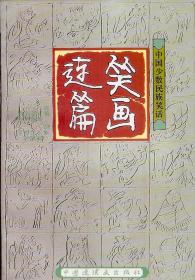 中国少数民族笑话
笑画
连篇
中国连环画出版社